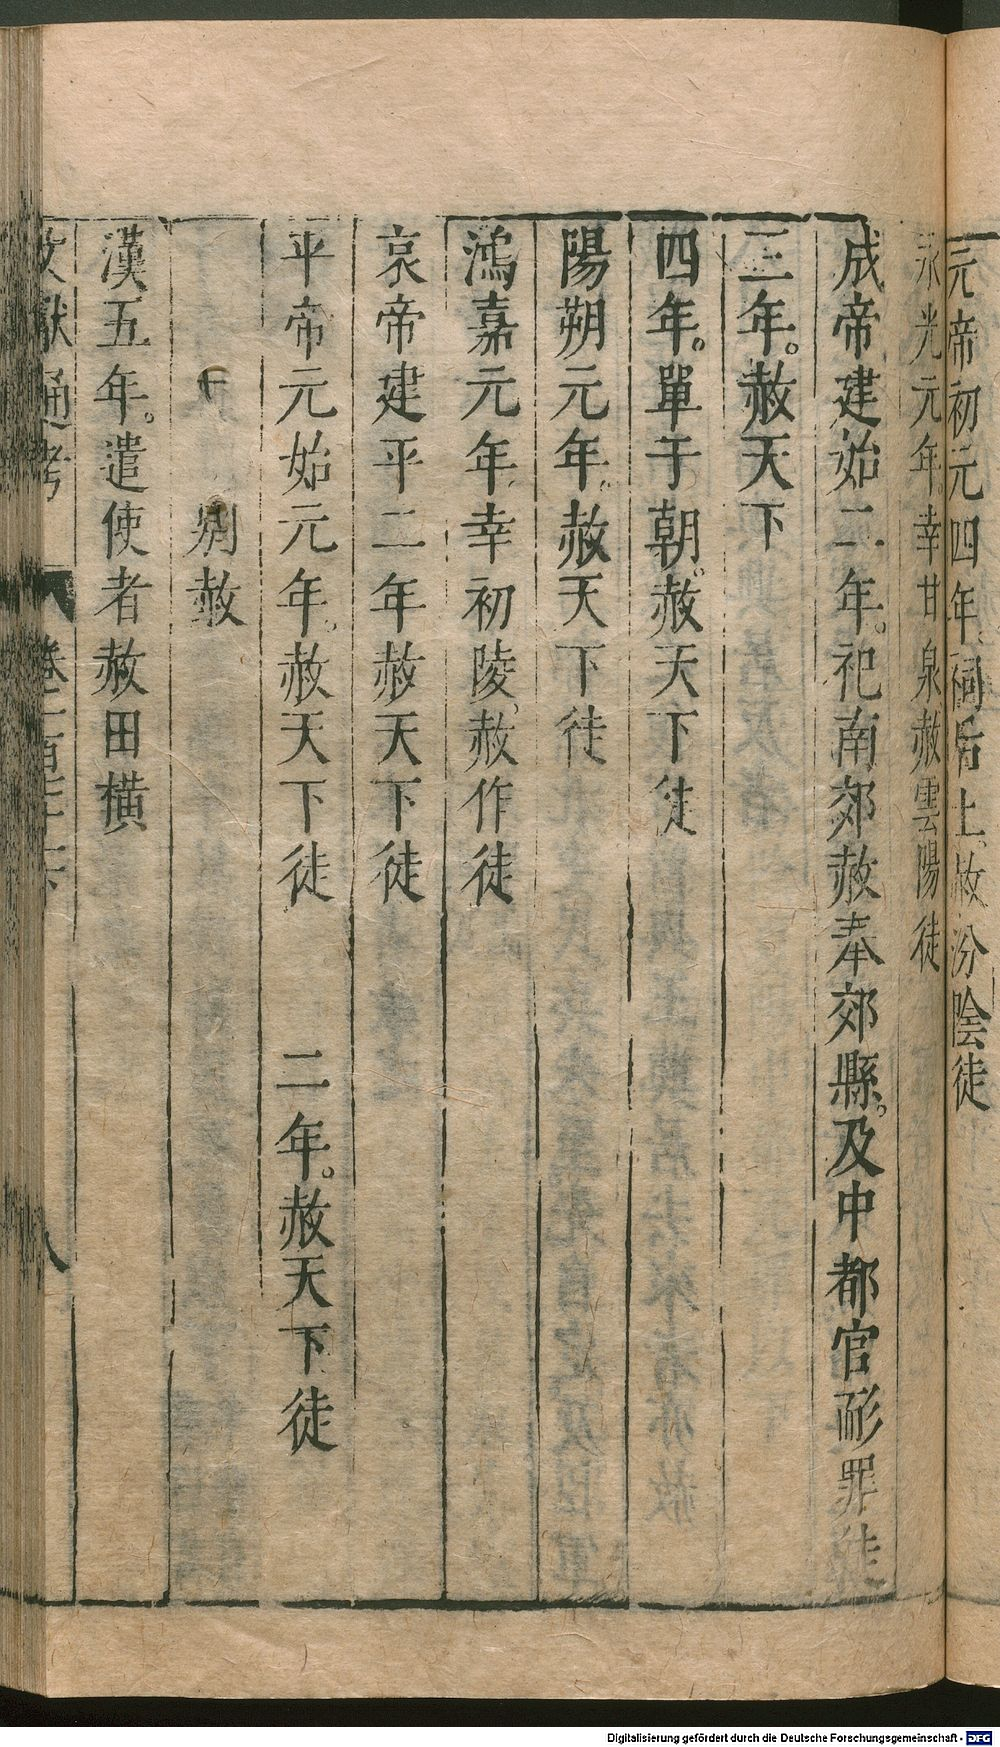 元帝初元四年祠后土赦汾陰徒
永光元年幸甘泉赦雲陽徒
成帝建始二年。祀南郊赦奉郊縣。及中都官耐罪徒
三年。赦天下
四年。單于朝。赦天下徒
陽朔元年。赦天下徒
鴻嘉元年。幸初陵、赦作徒
哀帝建平二年赦天下徒
平帝元始元年。赦天下徒　二年。赦天下徒
別赦
漢五年。遣使者赦田橫
文獻通考　卷一百七十一下　八
Digitalisierung gefördert durch die Deutsche Forschungsgemeinschaft - DFG